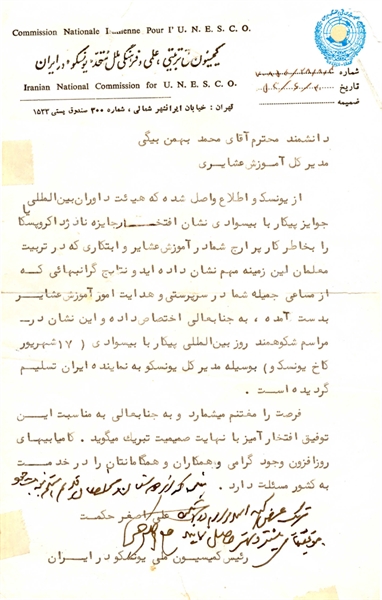 Commission Nationale Iranienne Pour l' U. N. E. S. C. O.
کمیسیون ملی تربیتی، علمی و فرهنگی ملل متحد: یونسکو در ایران
Iranian National Commission for U. N. E. S. C. O.
تهران: خیابان ایرانشهر شمالی، شماره ۳۰۰ صندوق پستی ۱۵۳۳
شماره
تاریخ
ضمیمه
دانشمند محترم آقای محمد بهمن بیگی
مدیر کل آموزش عشایری
از یونسکو اطلاع واصل شده که هیئت داوران بین‌المللی
جوایز پیکار با بیسوادی نشان افتخار جایزه نادژدا کروپسکایا
را بخاطر کار پر ارج شما در آموزش عشایر و ابتکاری که در تربیت
معلمان این زمینه مهم نشان داده اید و نتایج گرانبهائی که
از مساعی جمیله شما در سرپرستی و هدایت امور آموزش عشایر
بدست آمده ، به جنابعالی اختصاص داده و این نشان در
مراسم شکوهمند روز بین‌المللی پیکار با بیسوادی ( ۱۷ شهریور
کاخ یونسکو ) بوسیله مدیر کل یونسکو به نماینده ایران تسلیم
گردیده است .
فرصت را مغتنم میشمارد و به جنابعالی به مناسبت این
توفیق افتخار آمیز با نهایت صمیمیت تبریک میگوید . کامیابیهای
روزافزون وجود گرامی و همکاران و همگامانتان را در خدمت
به کشور مسئلت دارد .
علی اصغر حکمت
رئیس کمیسیون ملی یونسکو در ایران